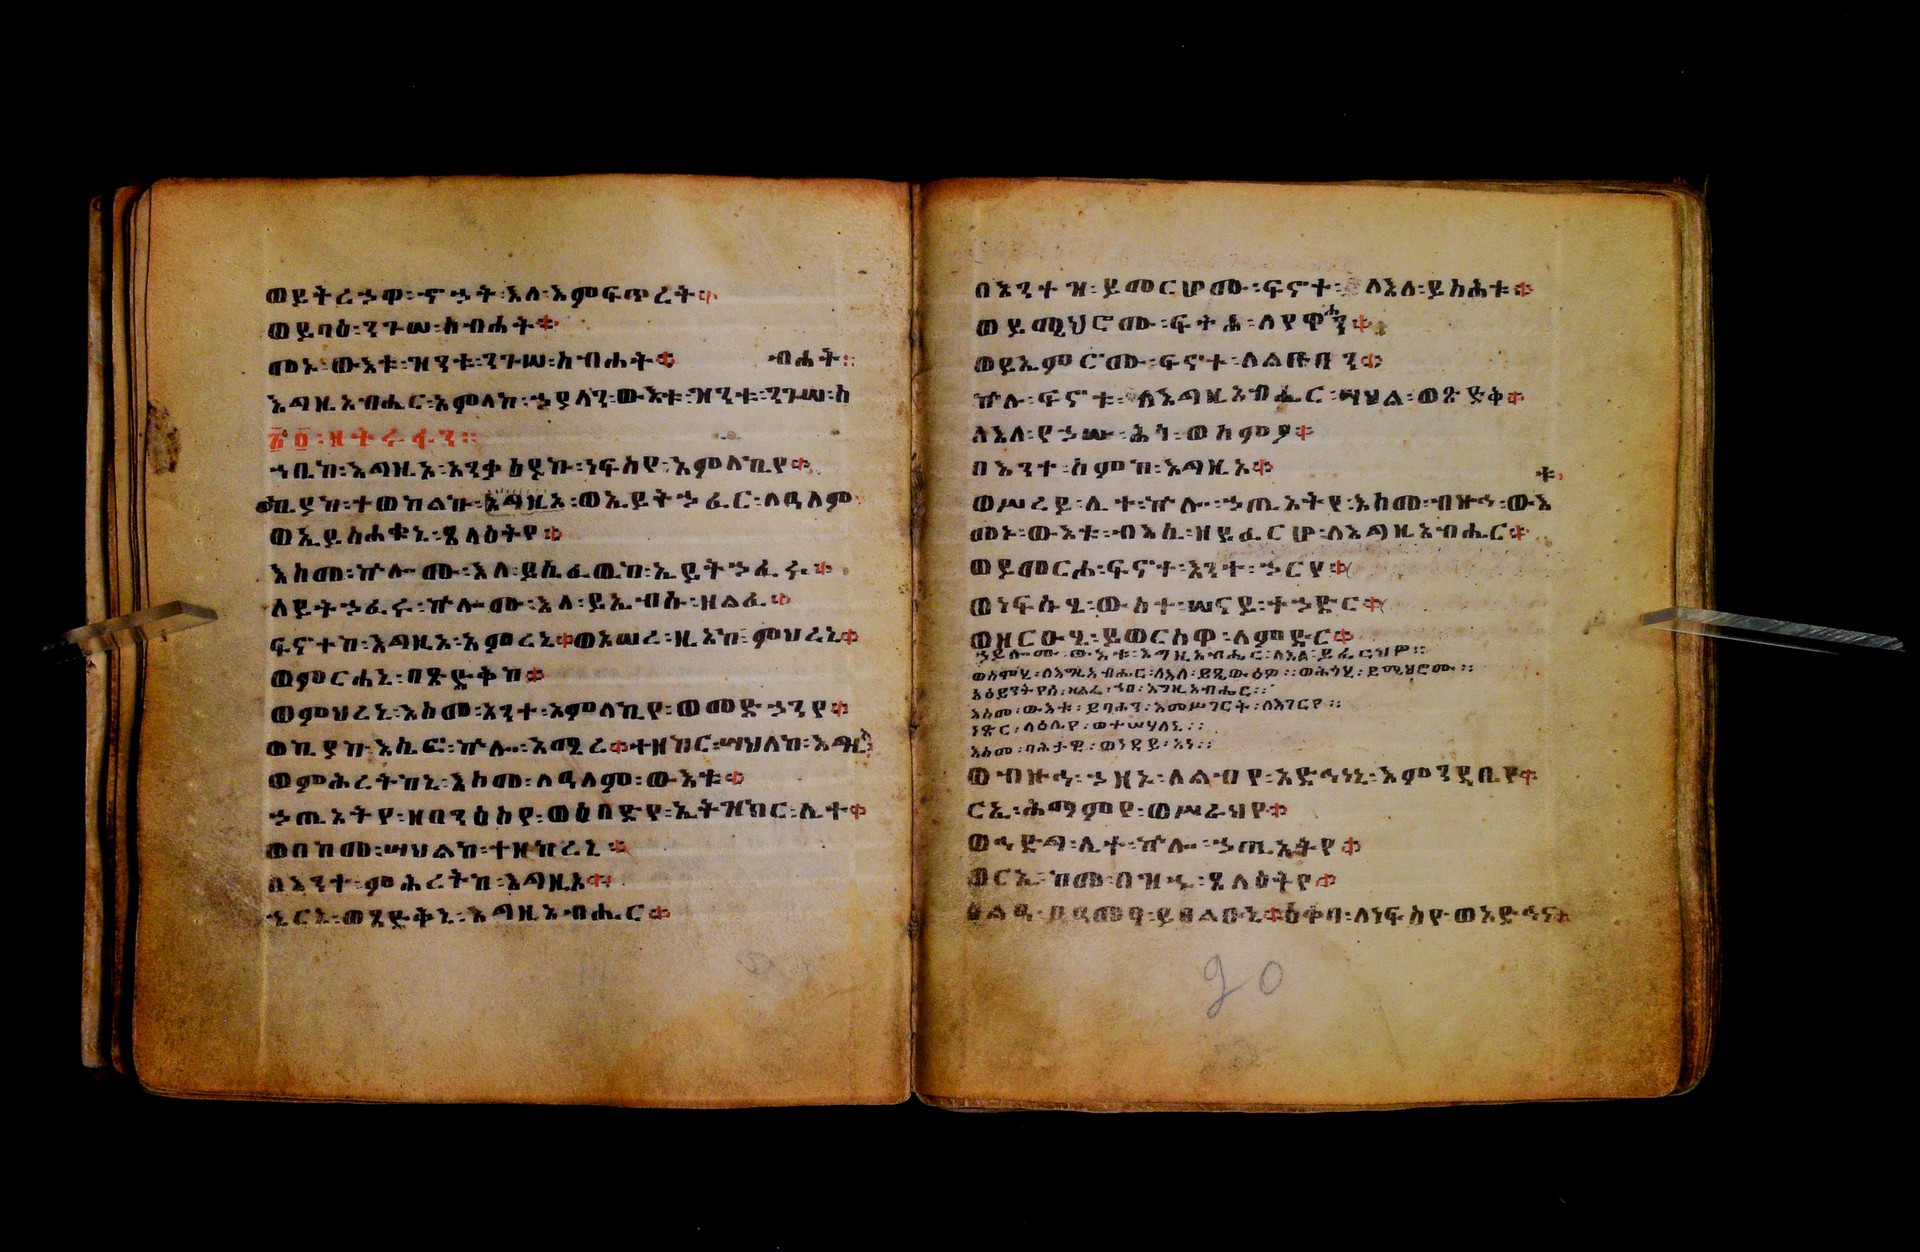 ወይትረኃዋ፡ኆኃት፡እለ፡እምፍጥረት።
ወይባዕ፡ንጉሠ፡ስብሐት።
መኑ፡ውእቱ፡ዝንቱ፡ንጉሠ፡ስብሐት። ብሐት።
እግዚአብሔር፡አምላከ፡ኃያላን፡ውእቱ፡ዝንቱ፡ንጉሠ፡ስ
፳፬፡ዘትሩፋን።
ኀቤከ፡እግዚኦ፡አንቃዕደኩ፡ነፍስየ፡አምላኪየ።
ኪያከ፡ተወከልኩ፡እግዚኦ፡ወኢይትኃፈር፡ለዓለም
ወኢይስሐቁኒ፡ጸላዕትየ።
እስመ፡ኵሎሙ፡እለ፡ይሴፈዉከ፡ኢይትኃፈሩ።
ለይትኃፈሩ፡ኵሎሙ፡እለ፡ይኤብሱ፡ዘልፈ።
ፍኖተከ፡እግዚኦ፡አምረኒ።ወአሠረ፡ዚአከ፡ምህረኒ።
ወምርሐኒ፡በጽድቅከ።
ወምህረኒ፡እስመ፡አንተ፡አምላኪየ፡ወመድኃንየ።
ወኪያከ፡እሴፎ፡ኵሎ፡አሚረ።ተዘከር፡ሣህለከ፡እግዚ
ወምሕረትከኒ፡እስመ፡ለዓለም፡ውእቱ።
ኃጢአትየ፡ዘበንዕስየ፡ወዕበድየ፡ኢትዝከር፡ሊተ።
ወበከመ፡ሣህልከ፡ተዘከረኒ።
በእንተ፡ምሕረትከ፡እግዚኦ።
ኄርኒ፡ወጻድቅኒ፡እግዚአብሔር።
በእንተ፡ዝ፡ይመርሆሙ፡ፍኖተ፡ለእለ፡ይስሕቱ።
ወይሜህሮሙ፡ፍትሐ፡ለየዋሃን።
ወይኤምሮሙ፡ፍኖተ፡ለልቡባን።
ኵሉ፡ፍኖቱ፡ለእግዚአብሔር፡ሣህል፡ወጽድቅ።
ለእለ፡የኃሡ፡ሕጎ፡ወስምዖ።
በእንተ፡ስምከ፡እግዚኦ።
ቱ።
ወሥረይ፡ሊተ፡ኵሎ፡ኃጢአትየ፡እስመ፡ብዙኅ፡ውእ
መኑ፡ውእቱ፡ብእሲ፡ዘይፈርሆ፡ለእግዚአብሔር።
ወይመርሐ፡ፍኖተ፡እንተ፡ኃርየ።
ወነፍሱሂ፡ውስተ፡ሠናይ፡ተኃድር።
ወዘርዑሂ፡ይወርስዋ፡ለምድር።
ኃይሎሙ፡ውእቱ፡እግዚአብሔር፡ለእለ፡ይፈርህዎ።
ወስምሂ፡ለእግዚአብሔር፡ለእለ፡ይጼውዕዎ።ወሕጎሂ፡ይሜህሮሙ።
አዕይንትየሰ፡ዘልፈ፡ኀበ፡እግዚአብሔር።
እስመ፡ውእቱ፡ይባሐን፡እመሥገርት፡ለእገርየ።
ነጽር፡ላዕሌየ፡ወተሣሃለኒ።
እስመ፡ባሕታዊ፡ወነዳይ፡አነ።
ወብዙኃ፡ኃዘኑ፡ለልብየ፡አድኅነኒ፡እምንዳቤየ።
ርኢ፡ሕማምየ፡ወሥራህየ።
ወኅድግ፡ሊተ፡ኵሎ፡ኃጢአትየ።
ወርኢ፡ከመ፡በዝኁ፡ጸላዕትየ።
ዕቀባ፡ለነፍስየ፡ወአድኅነኒ
20